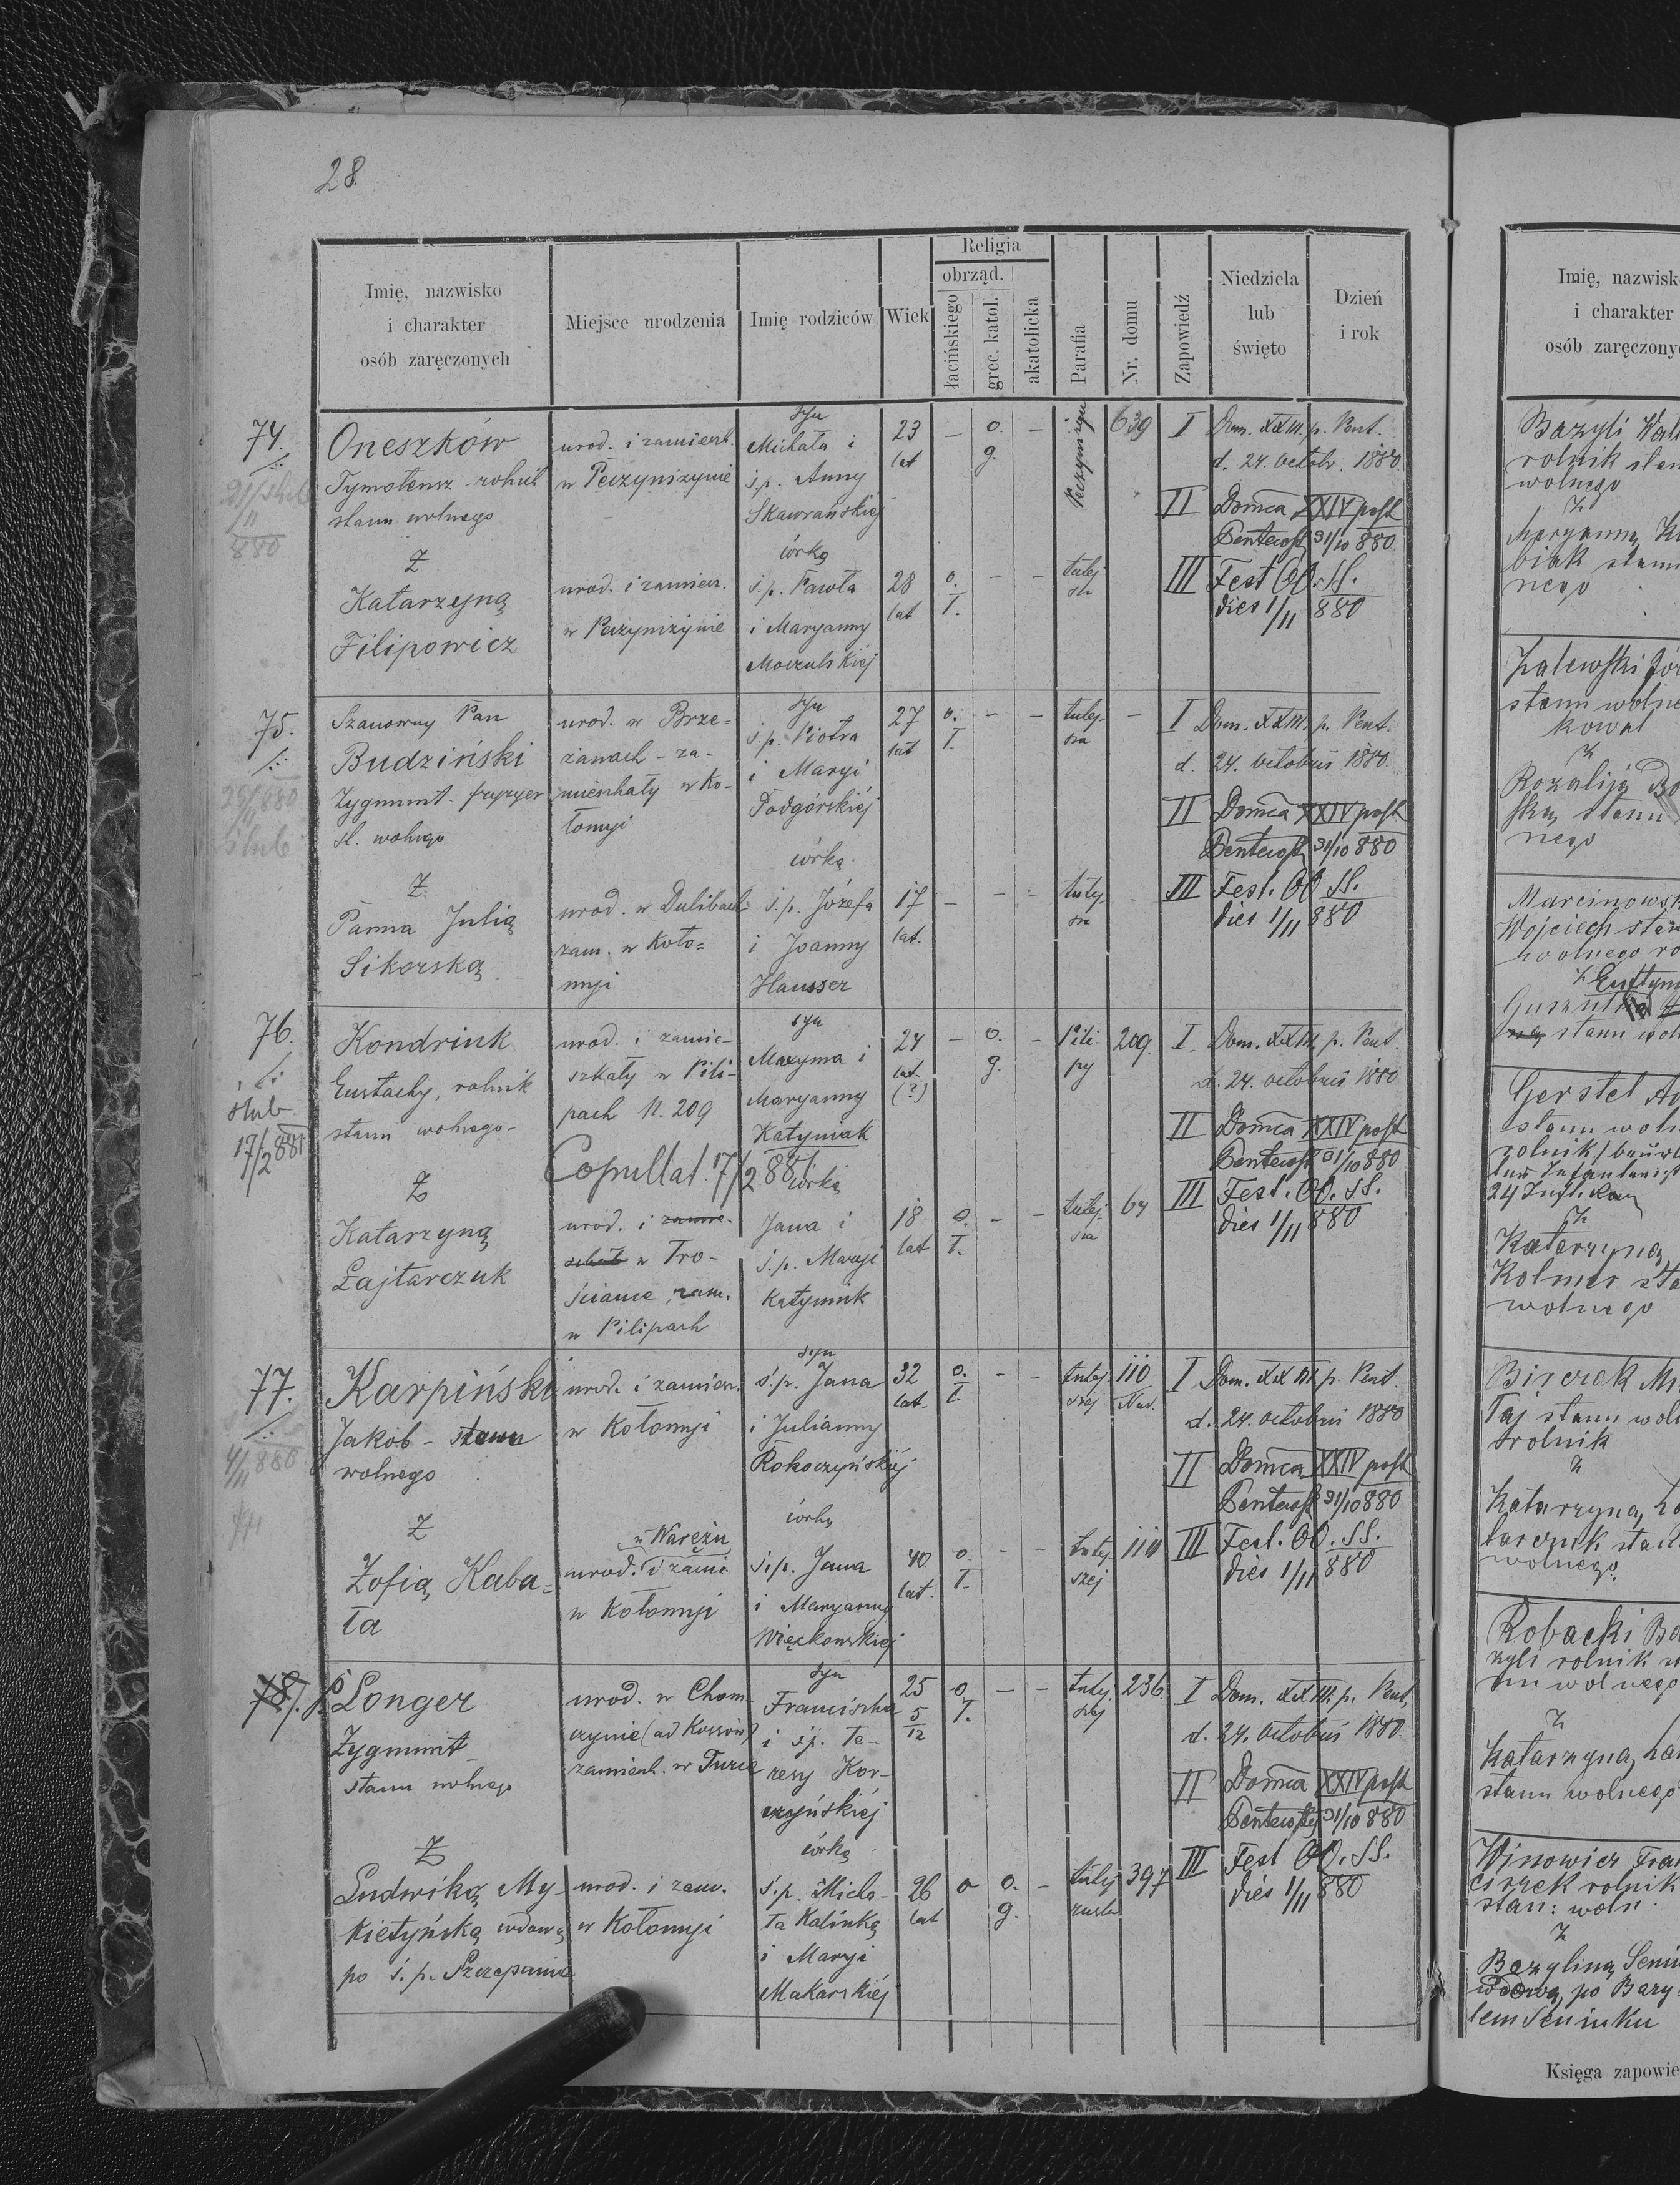 28.
Religia
obrząd.
Imię, nazwisko
i charakter
osób zaręczonych
Miejsce urodzenia
Imię rodziców
Wiek
łacińskiego
grec. katol.
akatolicka
Parafia
Nr. domu
Zapowiedź
Niedziela
lub
święto
Dzień
i rok
74.
Oneszków
Tymoteusz - rolnik
stanu wolnego
Z
Katarzyną
Filipowicz
urod. i zamieszk.
w Peczyniżynie
urod. i zamiesz.
w Peczyniżynie
syn
Michała i
ś.p. Anny
Skawrańskiej
córką
ś.p. Pawła
i Maryanny
Moczulskiej
23
lat
28
lat
–
o.
g.
–
o.
ł.
–
–
Peczyniżyn
tutej
sza
639
I Dom. XXIII. p. Pent.
d. 24. octobr. 1880.
II Domca XXIV post
Pentecost 31/10 880
III Fest OO. SS.
dies 1/11 880
75.
29/11 880
ślub
Szanowny Pan
Budziński
Zygmunt - fryzyer
st. wolnego
Z
Panna Julią
Sikorską
urod. w Brze-
żanach - za-
mieszkały w Ko-
łomyi
urod. w Dulibach
zam. w Koło-
myi
syn
ś.p. Piotra
i Maryi
Podgórskiéj
córką
ś.p. Józefa
i Joanny
Hausser
27
lat
17
lat.
o.
ł.
–
–
tutej
sza
–
tutej
sza
I Dom. XXIII. p. Pent.
d. 24. octobris 1880.
II Domca XXIV post
Pentecost 31/10 880
III Fest. OO SS.
dies 1/11 880
76.
ślub
17/2 881
Kondriuk
Eustachy, rolnik
stanu wolnego -
Z
Katarzyną
Łajtarczuk
urod. i zamie-
szkały w Pili-
pach N. 209
Copullat. 17/2 881
urod. i zamie-
szkał w Tro-
ścianie, zam.
w Pilipach
syn
Maxyma i
Maryanny
Katyniak
córką
Jana i
ś.p. Maryi
Katyniuk
24
lat.
(?)
18
lat
–
o.
g.
–
o.
ł.
–
–
Pili-
py
tutej-
sza
209.
64
I. Dom. XXIII. p. Pent.
d. 24. octobris 1880.
II Domca XXIV post
Pentecost 31/10 880
III Fest. OO. SS.
dies 1/11 880
77.
4/11 880
Karpiński
Jakób - stanu
wolnego
Z
Zofią Kaba-
ła
urod. i zamiesz.
w Kołomyi
w Warężu
urod. i zamie.
w Kołomyi
syn
ś.p. Jana
i Julianny
Rokoczyńskiéj
córką
ś.p. Jana
i Maryanny
Więckowskiej
32
lat.
40
lat.
o.
ł.
–
–
o.
ł.
–
–
tutej
szej
tutej.
szej
110
110
I Dom. XXIII. p. Pent.
d. 24. octobris 1880
II Domca XXIV post
Pentecost 31/10 880
III Fest. OO. SS.
dies 1/11 880
78.
Longer
Zygmunt -
stanu wolnego
Z
Ludwiką My-
kietyńską wdową
po ś.p. Szczepanie
urod. w Chom
czynie (ad Kossów)
zamieszk. w Turce
urod. i zam.
w Kołomyi
syn
Franciszka
i ś.p. Te-
resy Kor-
czyńskiéj
córką
ś.p. Micha-
ła Kalinką
i Maryi
Makarskiéj
25
5
12
26
lat
o.
ł.
–
–
o
o.
g.
–
tutej.
szej
236
397
I Dom. XXIII. p. Pent.
d. 24. octobris 1880.
II Domca XXIV post
31/10 880
III Fest OO. SS.
dies 1/11 880
Imię, nazwisk
i charakter
osób zaręczony
Bazyli
rolnik stan
wolnego
Z
Maryanną
biak stanu
nego
Zalewski Józ
stanu wolne
kowal
Z
Rozaliją
ską stanu
nego
Marcinowsk
Wojciech stan
wolnego ro
z
stanu woln
Gerstel
stanu woln
rolnik
Z
Katarzyną
Kolmer sta
wolnego
taj stanu woln
rolnik
z
Katarzyną
tarczuk stan
wolnego.
Robacki Ba
zyli rolnik s
nu wolnego
Z
Katarzyną
stanu wolnego
Winowicz Fran
ciszek rolnik
stan: woln.
Z
Bazyliną
wdową po Bazy-
lem Seniuku
Księga zapowie